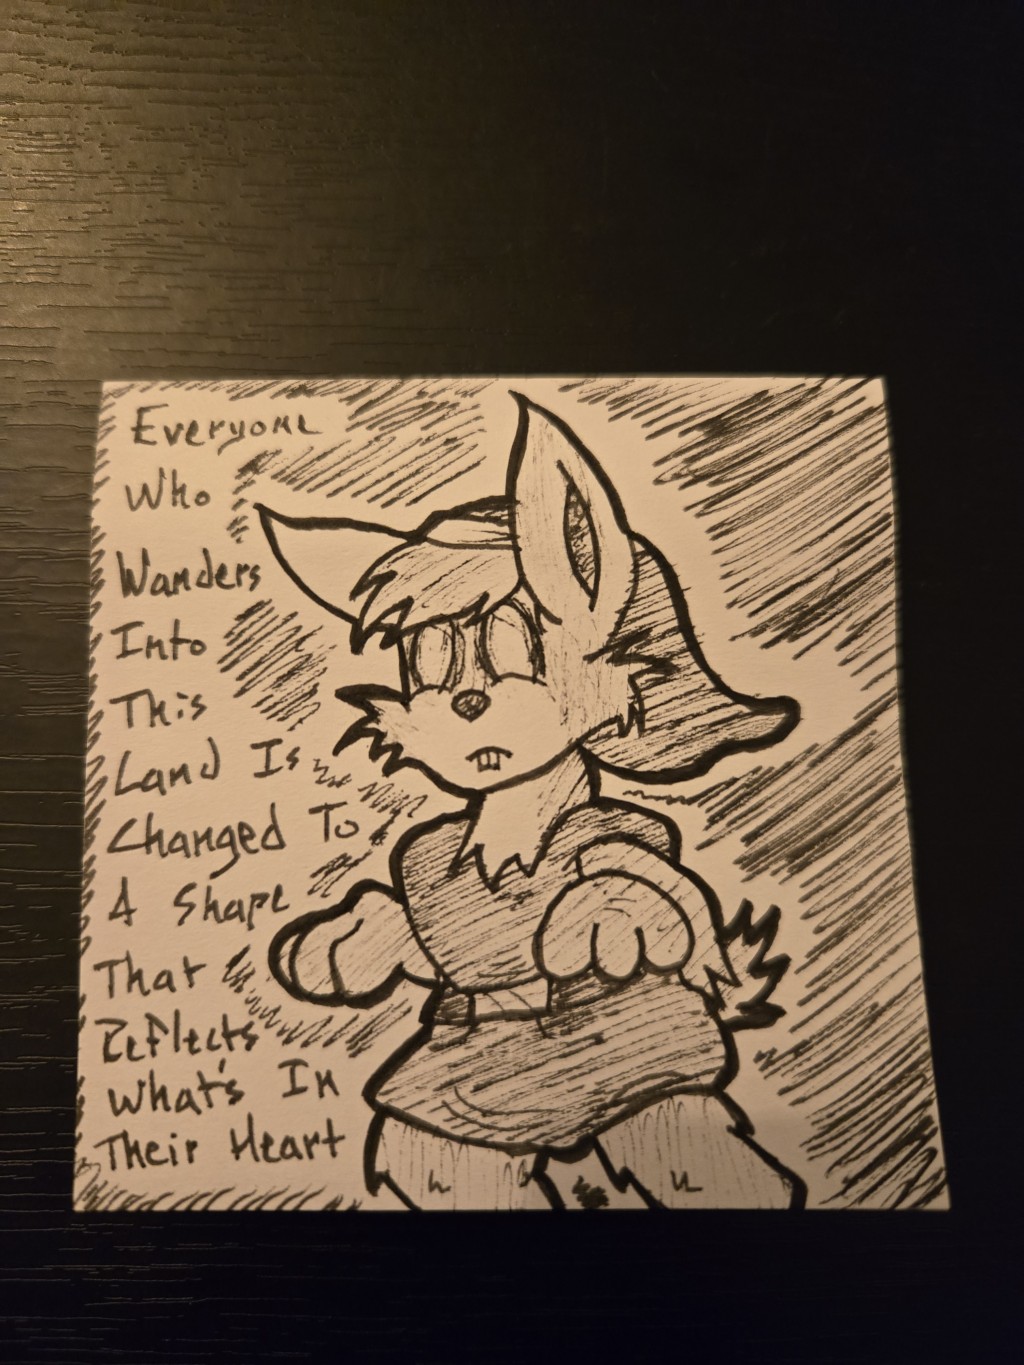 Everyone
Who
Wanders
Into
This
Land Is
Changed To
A Shape
That
Reflects
What's In
Their Heart